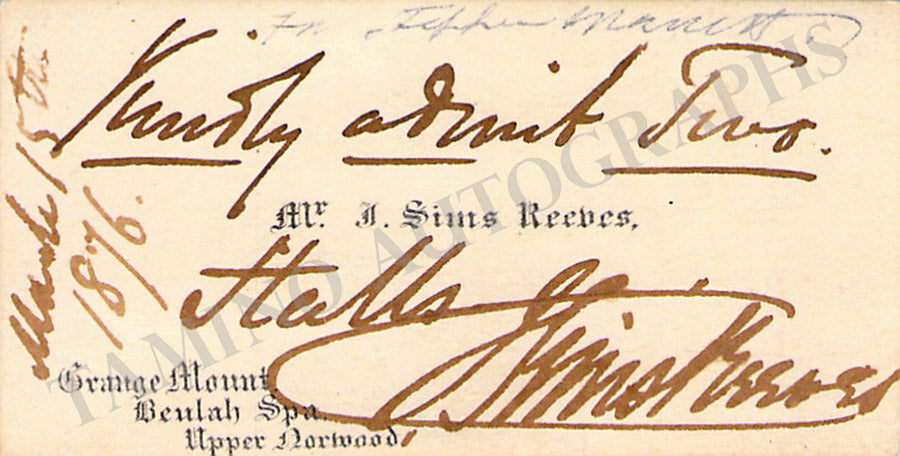 Kindly admit Two.
Mr. J. Sims Reeves,
Stalls
Sims Reeves
Grange Mount,
Beulah Spa,
Upper Norwood,
March 15th
1876.
TAMINO AUTOGRAPHS